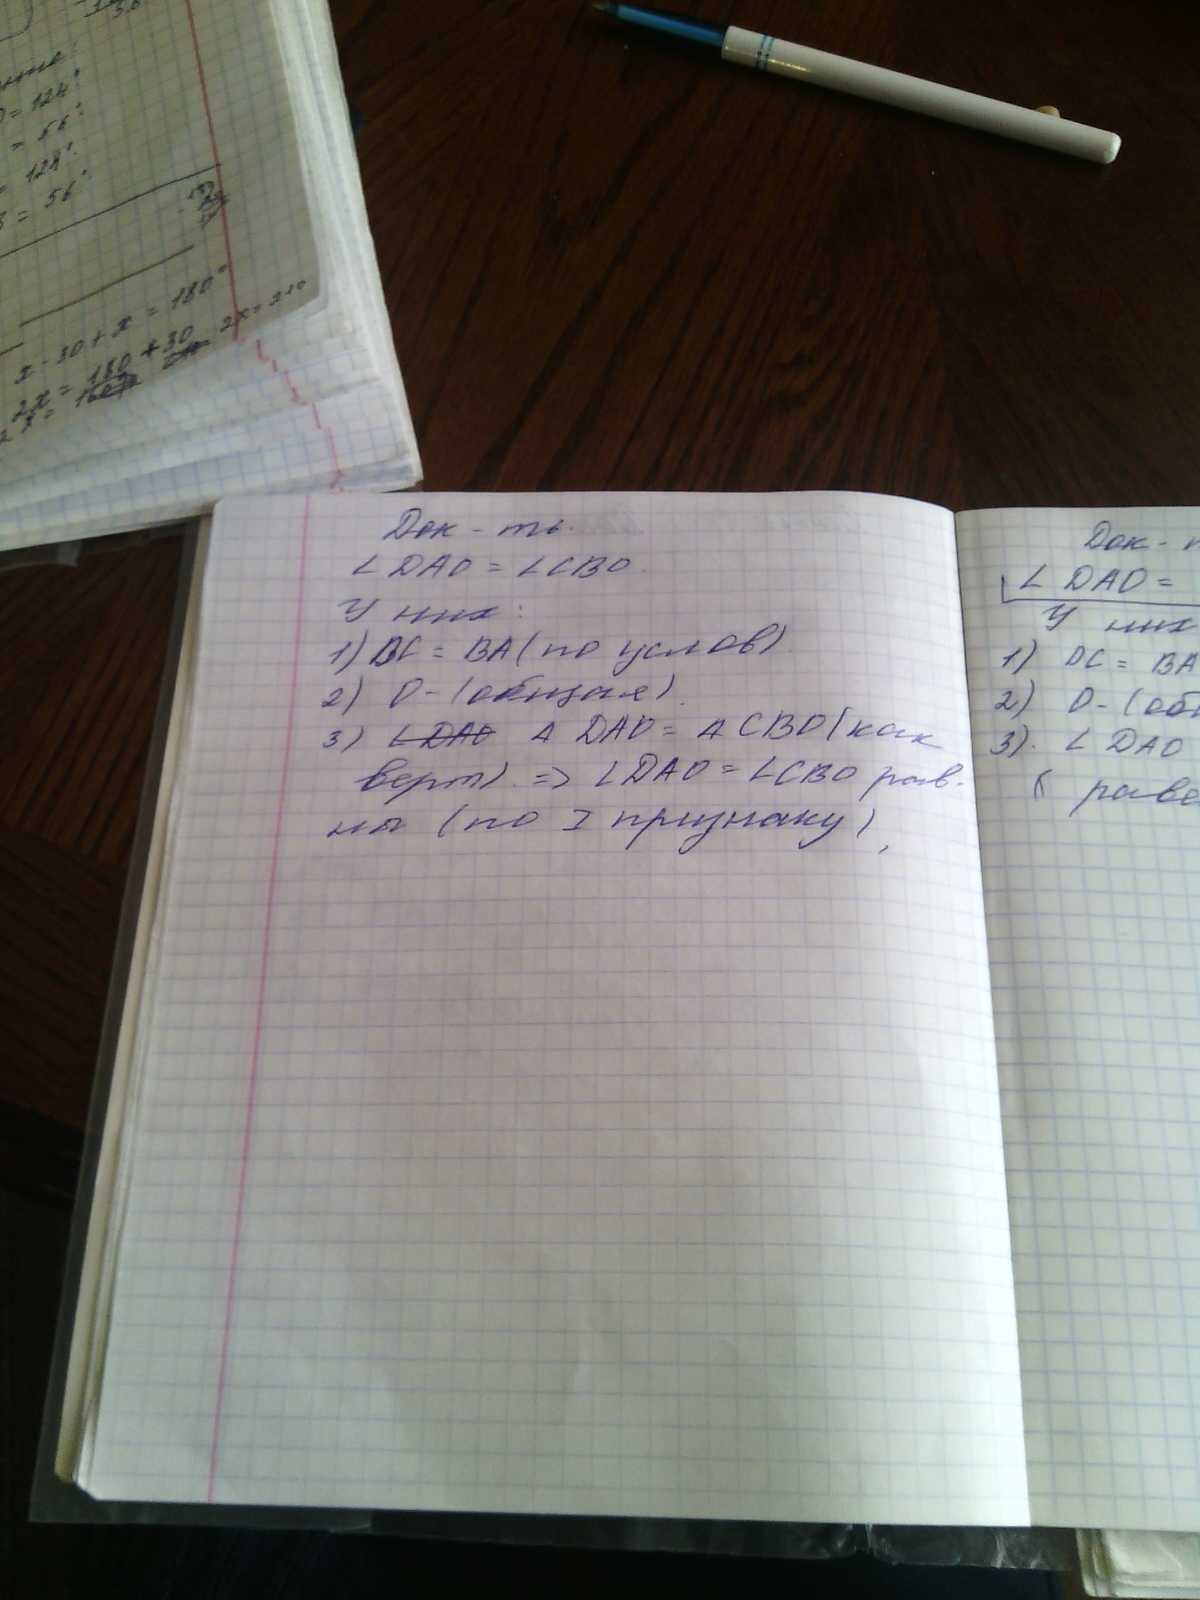 = 124°
= 56°
= 124°
= 56°
x - 30 + x = 180°
2x = 180 + 30 2x = 210
2x =
Док - ть.
∠ DAO = ∠CBO.
У них:
1) BC = BA (по услов).
2) O - (общая).
3) ∠ DAO Δ DAO = Δ CBO (как
верт). => ∠DAO = ∠CBO рав-
ны (по I признаку),
Док -
∠ DAO =
У них
1) DC = BA
2) O - (общ
3). ∠ DAO
( раве